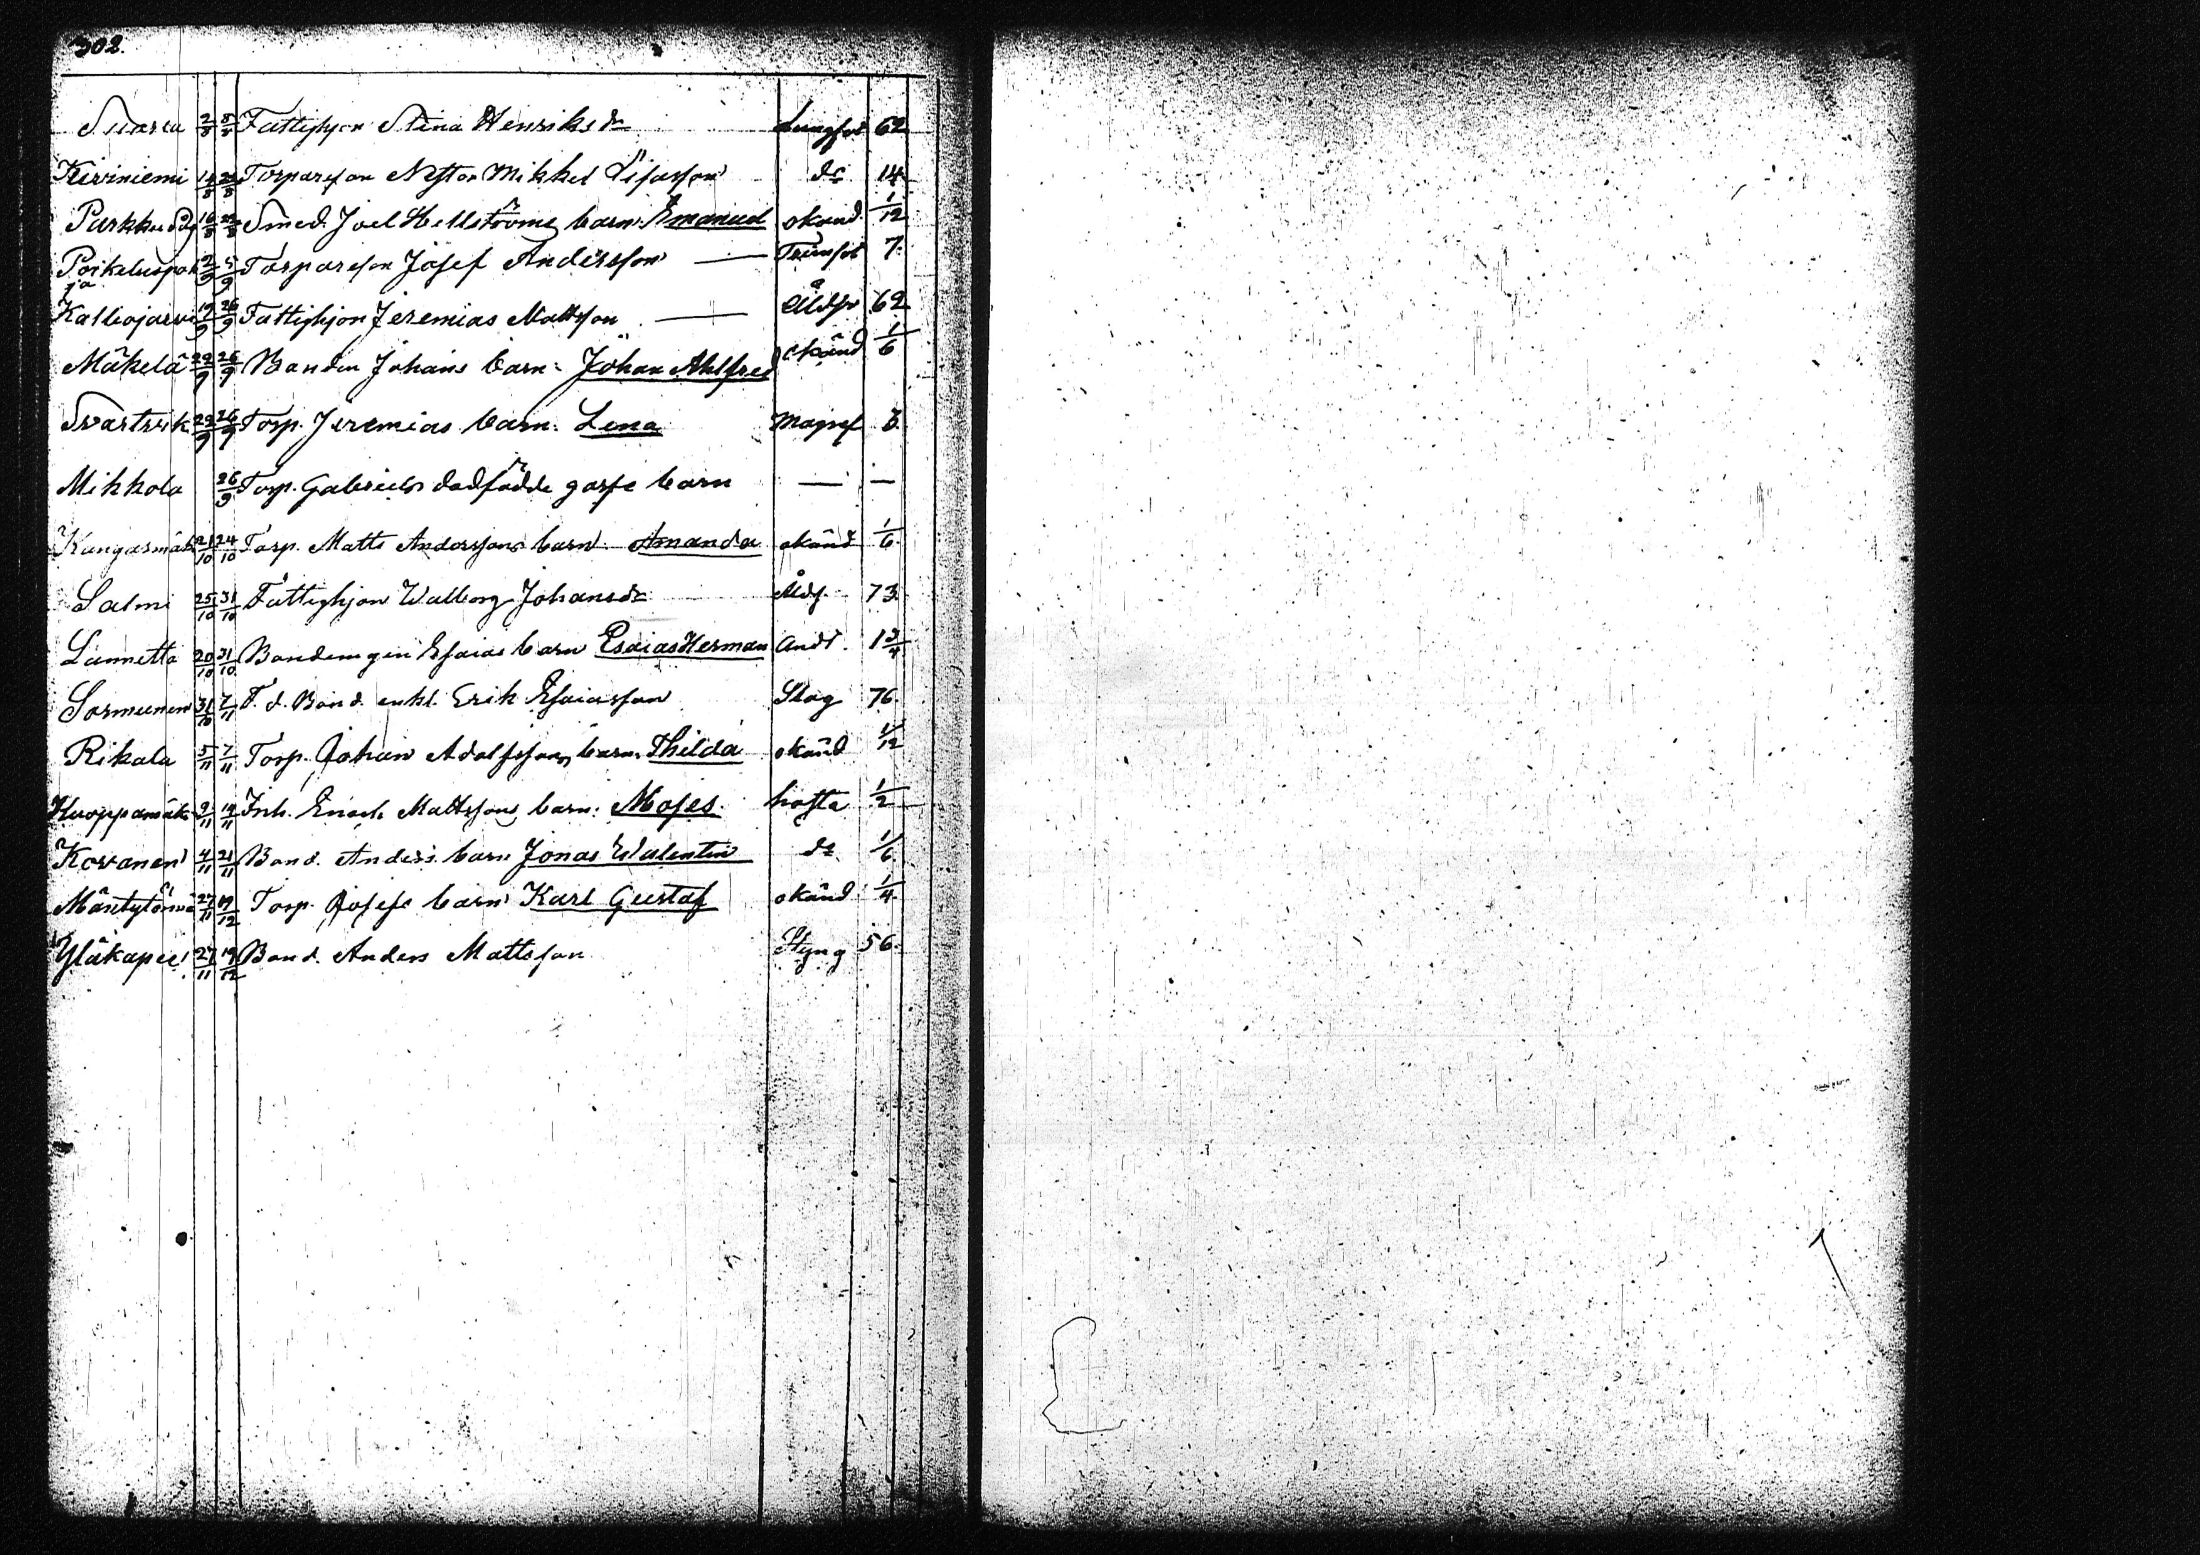 302.
2/8 5/8 Fattighjon Stina Henriksdr Lungsot 62
Kiviniemi 14/8 22/8 Torpareson Nestor Mikkel do 14
Parkku 16/8 22/8 Smed. Joel Hellströms barn: Emanuel okänd 1/12
2/9 5/9 Torpareson Josef Andersson — 7.
Kalliojärvi 19/9 26/9 Fattighjon Jeremias Mattsson — Åldr 62
Mäkelä 22/9 26/9 Bonden Johans barn: Johan Ahlfred okänd 1/6
Svartvik 22/9 26/9 Torp. Jeremias barn. Lena Magref 3
Mikkola 26/9 Torp. Gabriels dödfödde gosse barn — —
Kangasmäki 21/10 24/10 Torp. Matts Anderssons barn. Amanda okänd 1/6.
Salmi 25/10 31/10 Fattighjon Walborg Johansdr Åldr. 73.
Lannetta 20/10 31/10 Bondemågen Esaias barn Esaias Herman Andt. 1 3/4
Sormunen 31/10 7/11 F. d. Bond. enkl. Erik Esaiasson Slag 76.
Rikala 5/11 7/11 Torp. Johan Adolfssons barn. Thilda okänd 1/12
Kuoppamäki 2/11 14/11 Inh. Enoch Mattssons barn. Moses. hosta 1/2
Korvanen 4/11 21/11 Bond. Anders. barn Jonas Walentin do 1/6
Mäntytörmä 27/11 19/12 Torp. Josefs barn Karl Gustaf okänd 1/4.
Yläkapee 27/11 19/12 Bond. Anders Mattsson Styng 56.